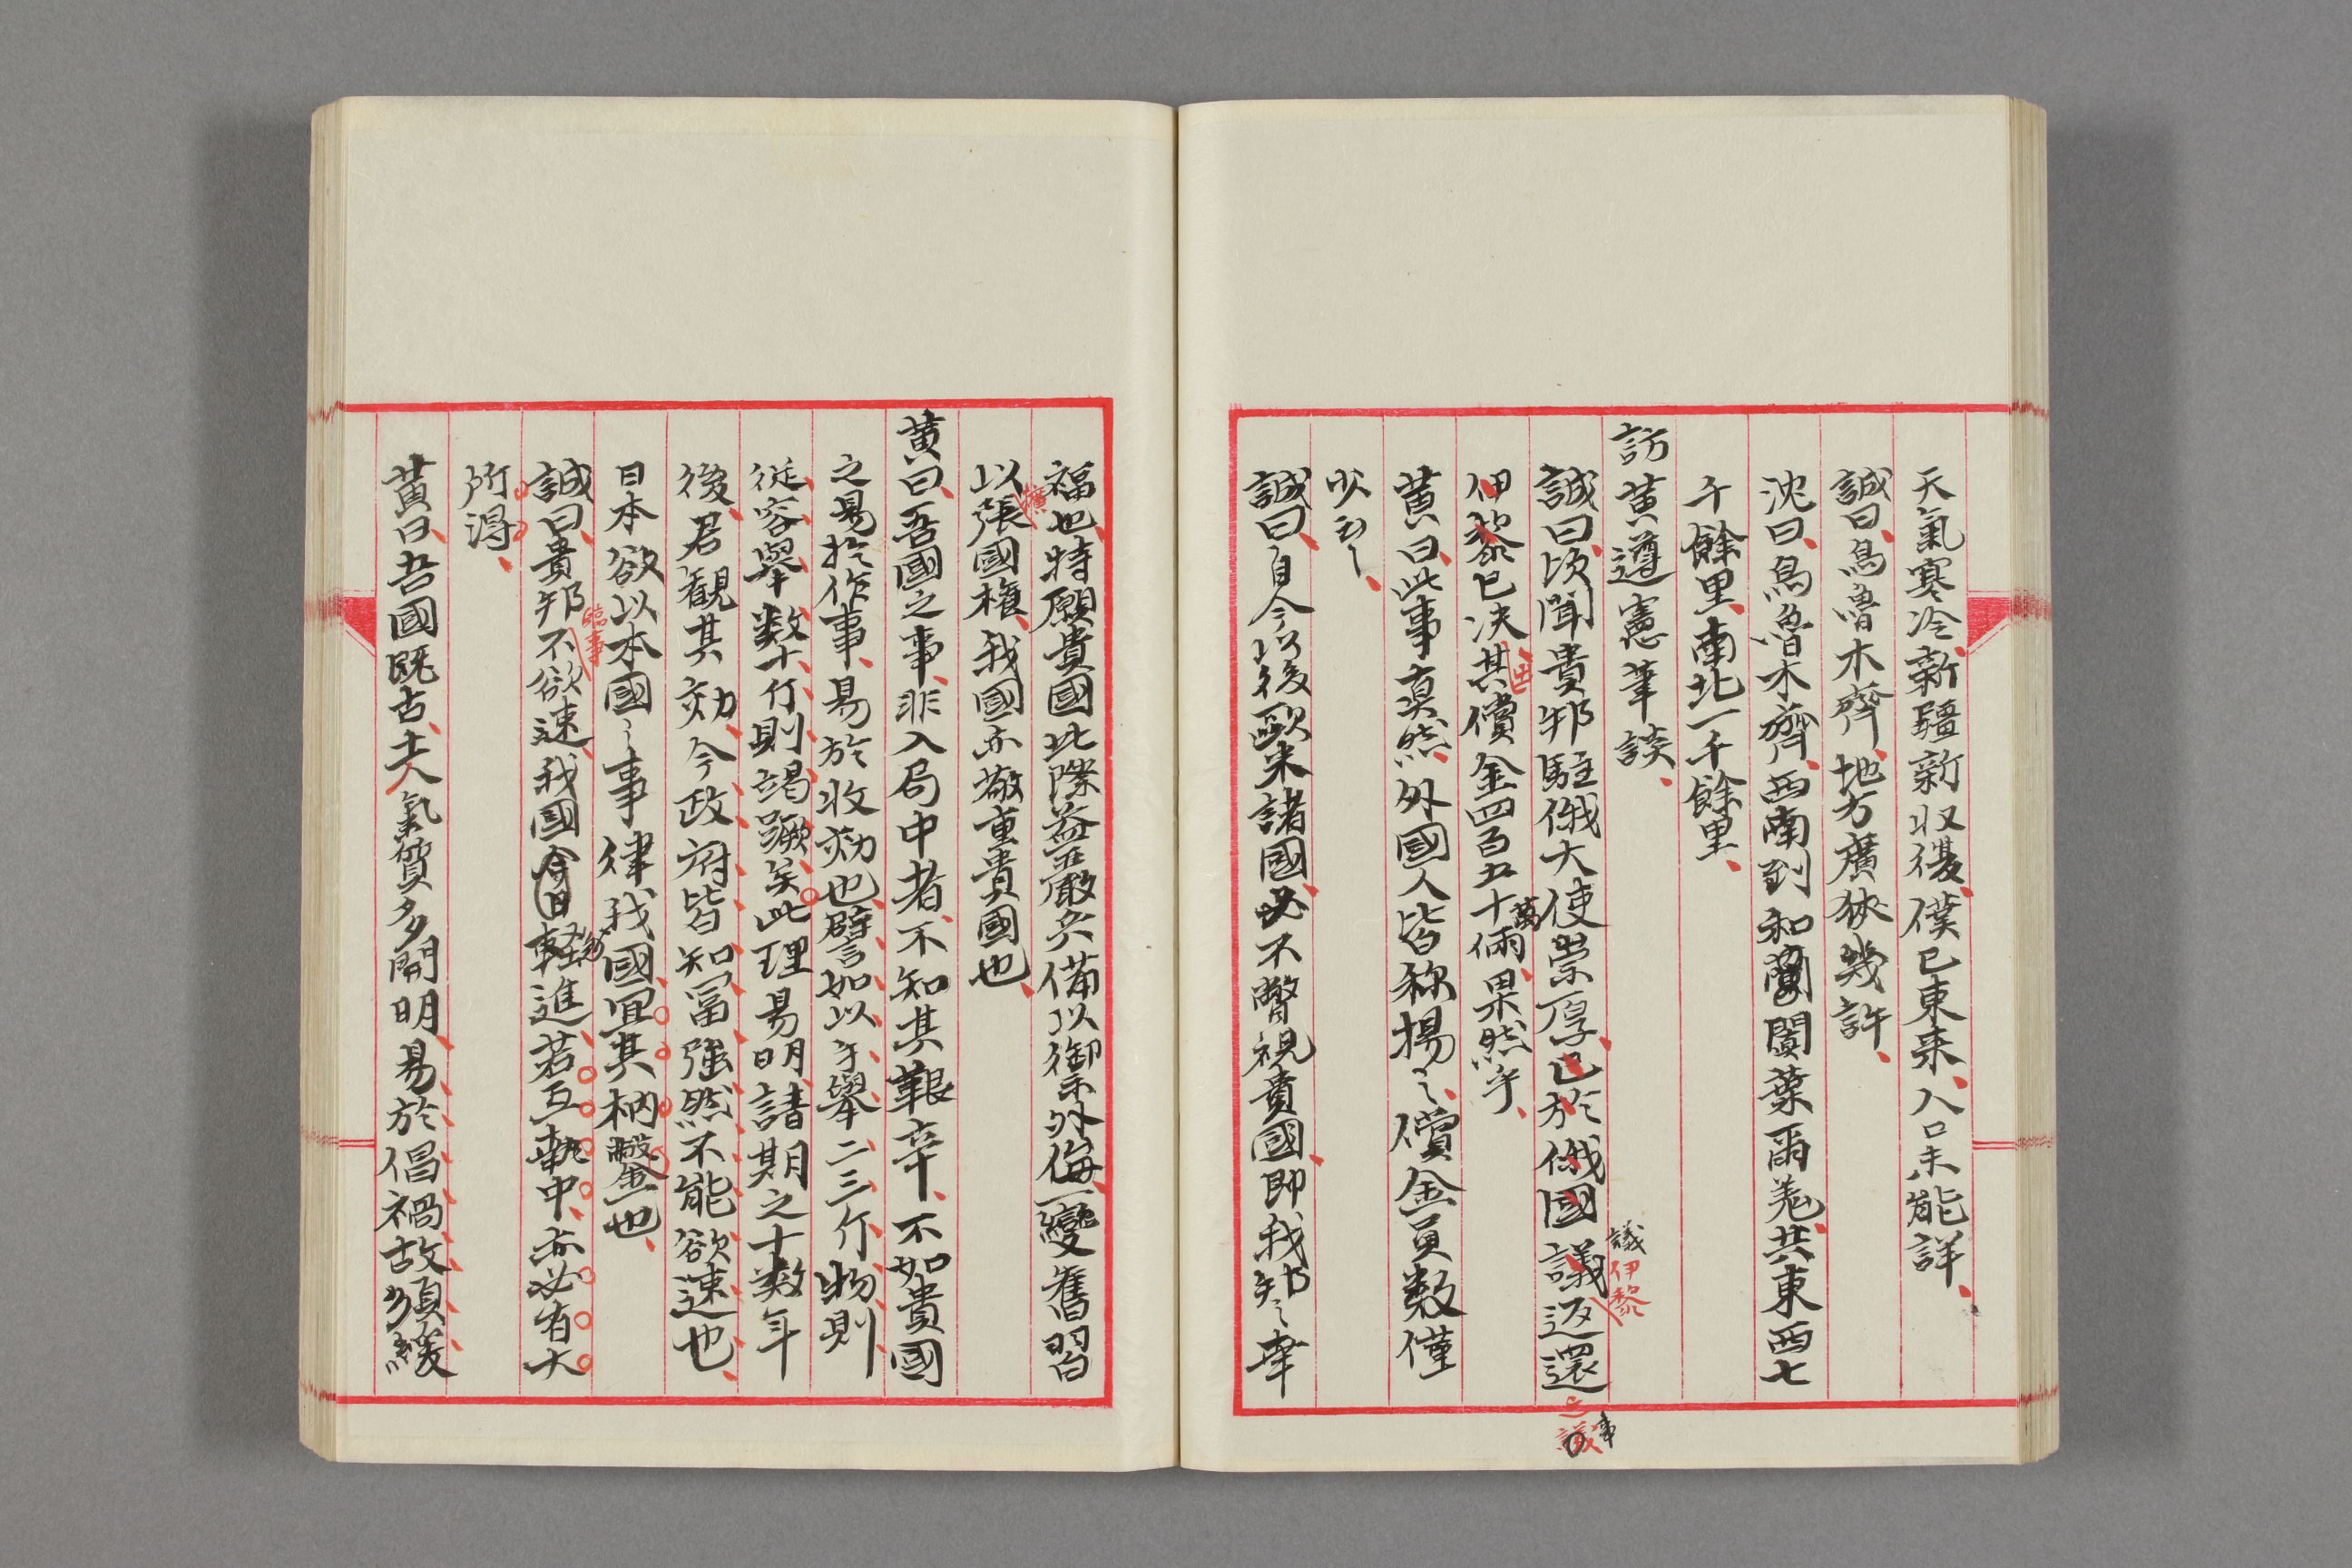 天氣寒冷、新疆新収復、僕已東来、八口未能詳、
誠曰、烏魯木齊、地方廣狹幾許、
沈曰、烏魯木齊、西南到和闐葉爾羌、共東西七
千餘里、南北一千餘里、
訪黄遵憲筆談、
誠曰、頃聞貴邦駐俄大使崇厚、已於俄國議返還
議伊黎
事
伊黎已决、其償金四百五十萬兩、果然乎、
出
黄曰、此事真然、外國人皆称揚之、償金員数僅
少云々、
誠曰、自今以後、歐米諸國、必不瞥視貴國、即我邦之幸
福也、特願貴國此際益嚴兵備以御外侮、一變舊習
以張國権、我國亦敬重貴國也、
擴
黄曰、吾國之事、非入局中者、不知其艱辛、不如貴國
之易於作事、易於收効也、譬如以手舉二三斤物、則
従容舉、数十斤則竭蹶矣、此理易明、請期之十数年
後、君觀其効、今政府皆知冨强、然不能欲速也、
日本欲以本國之事律我國、冝其枘鑿也、
誠曰、貴邦不欲速、我國今日輕進、若互執中、亦必有大
臨事
所得、
黄曰、吾國既古、士人氣質多開明、易於倡禍、故須緩